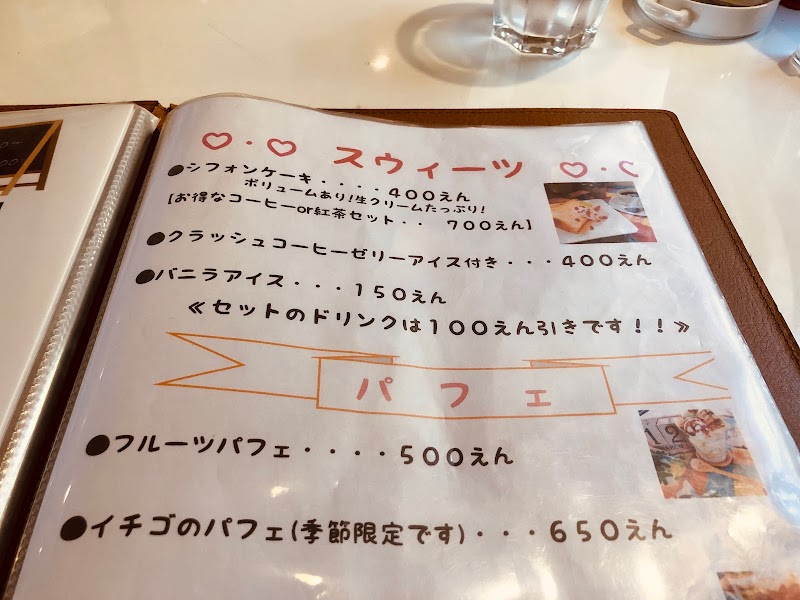 ♡・♡ スウィーツ ♡・
●シフォンケーキ・・・・４００えん
ボリュームあり!生クリームたっぷり!
【お得なコーヒーor紅茶セット・・ ７００えん】
●クラッシュコーヒーゼリーアイス付き・・・４００えん
●バニラアイス・・・１５０えん
≪セットのドリンクは１００えん引きです！！≫
パフェ
●フルーツパフェ・・・・５００えん
●イチゴのパフェ(季節限定です)・・・６５０えん